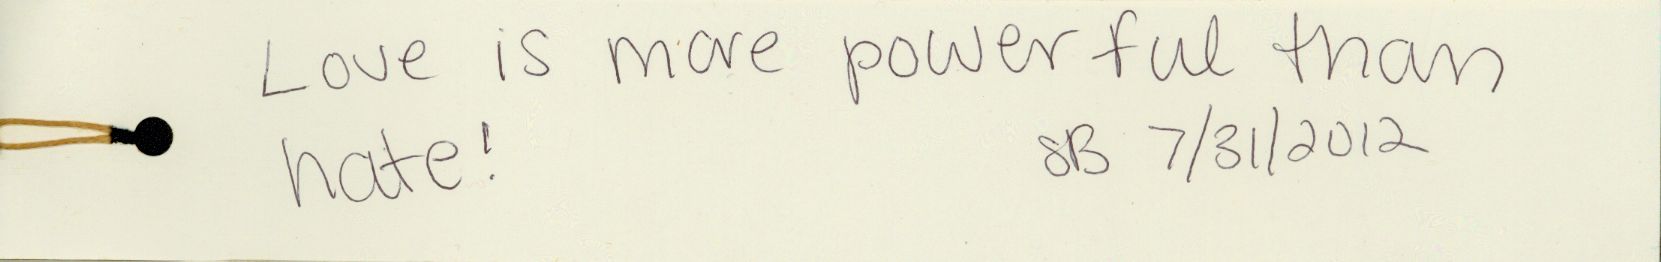 Love is more powerful than
hate! SB 7/31/2012